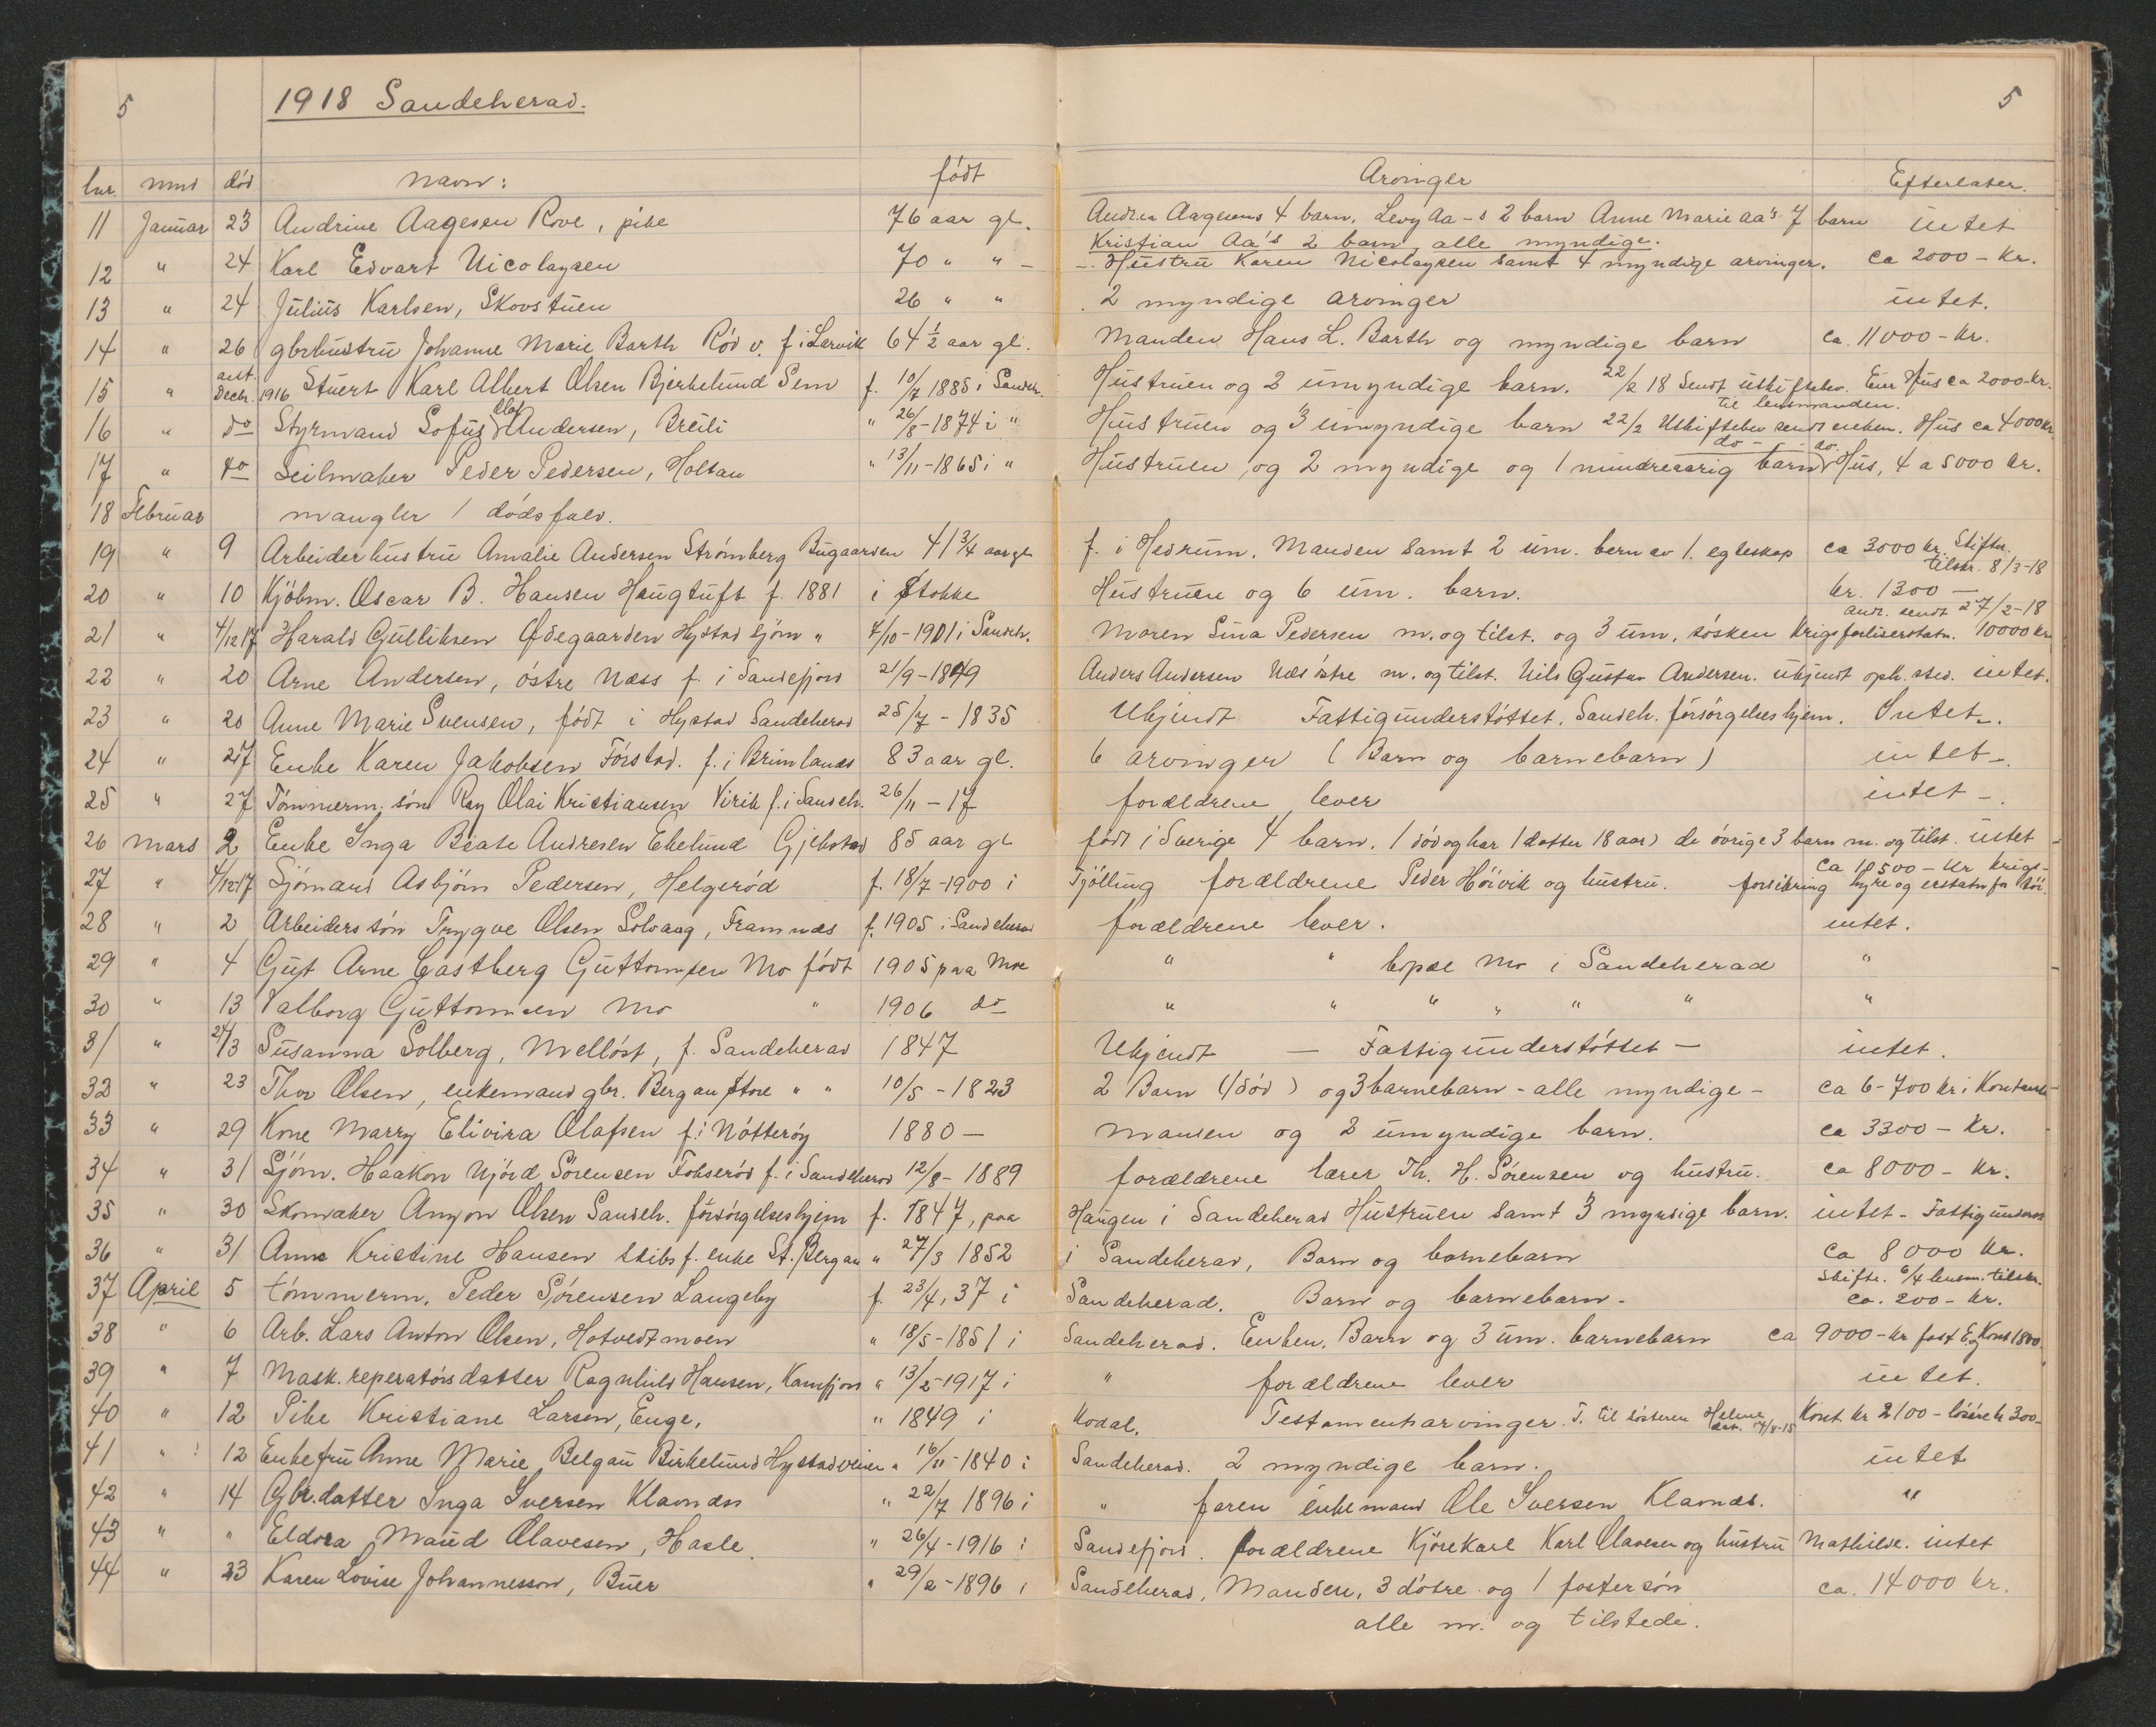 5 1918 Sandeherad. 5
lnr. mnd død Navn: født Arvinger Efterlater.
11 Januar 23 Andrine Aagesen Rove, pike 76 aar gl. Andrea Aagesens 4 barn, Levy Aa-s 2 barn Anne Marie Aa's 7 barn intet
Kristian Aa's 2 barn, alle myndige.
12 " 24 Karl Edvart Nicolaysen 70 " " - Hustru Karen Nicolaysen samt 4 myndige arvinger. ca 2000 - kr.
13 " 24 Julius Karlsen, Skovstuen 26 " " 2 myndige arvinger intet.
14 " 26 gbrhustru Johanne Marie Barth Rød v. f. i Larvik 64 1/2 aar gl. Manden Hans L. Barth og myndige barn ca. 11000 - kr.
15 " ant. Decbr. 1916 Stuert Karl Albert Olsen Bjerkelund Sem f. 10/7 1885 i Sandeh. Hustruen og 2 umyndige barn. 22/2 18 Sendt uskiftebev. Eier Hus ca 2000-kr.
til lensmanden.
16 " do Styrmand Sofus Olaf Andersen, Breili " 26/8-1874 i " Hustruen og 3 umyndige barn 22/2 Uskiftebev sendt enken. Hus ca 4000 kr.
17 " do Seilmaker Peder Pedersen, Holtan " 13/11-1865 i " Hustruen, og 2 myndige og 1 mindreaarig barn do - - - do. Hus, 4 a 5000 kr.
18 Februar mangler 1 dødsfald.
19 " 9 Arbeiderhustru Amalie Andersen Strømberg Bugaarden 41 3/4 aar gl f. i Hedrum. Manden samt 2 um. barn av 1. egteskap ca 3000 kr. Skiftr.
tilskr. 8/3-18
20 " 10 Kjøbm. Oscar B. Hansen Haugtuft f. 1881 i Stokke Hustruen og 6 um. barn. kr. 1300 -
andr. sendt 27/2-18
21 " 4/12 17 Harald Gulliksen Ødegaarden Hystad sjøm " 7/10-1901 i Sandeh. Maren Lina Pedersen m. og tilst. og 3 um. søsken Krigsforliserstatn. 10000 kr
22 " 20 Arne Andersen, østre Næss f. i Sandefjord 21/9-1849 Anders Andersen Næs østre m. og tilst. Nils Gustav Andersen. ukjendt oph. sted. intet.
23 " 20 Anne Marie Svensen, født i Hystad Sandeherad 25/7-1835 Ukjendt Fattigunderstøttet. Sandeh. forsørgelseshjem. Intet.
24 " 27 Enke Karen Jakobsen Førstad. f. i Brunlanes 83 aar gl. 6 arvinger (Barn og barnebarn) intet -.
25 " 27 Tømmerm. søn Ray Olai Kristiansen Virik f. i Sandeh. 26/11-17 forældrene lever intet -.
26 Mars 2 Enke Inga Beate Andresen Ekelund Gjekstad 85 aar gl født i Sverige 4 barn. 1 død og har 1 datter 18 aar) de øvrige 3 barn m. og tilst. intet
27 " 4/12-17 Sjømand Asbjørn Pedersen, Helgerød f. 18/7-1900 i Tjølling forældrene Peder Høivik og hustru. ca 10500 - kr krigs-
forsikring hyre og erstatn for tøi.
28 " 2 Arbeiders søn Trygve Olsen Solvang, Framnæs f. 1905 i Sandeherad forældrene lever. intet.
29 " 4 Gut Arne Castberg Guttormsen Mo født 1905 paa Moe " " bopæl Mo i Sandeherad "
30 " 13 Valborg Guttormsen Mo " 1906 do " " " " " " "
31 " 24/3 Susanna Solberg, Melløst, f. Sandeherad 1847 Ukjendt - Fattigunderstøttet - intet.
32 " 23 Thor Olsen, enkemand gbr. Bergan Store " " 10/5-1823 2 Barn (1 død) og 3 barnebarn - alle myndige - ca 6-700 kr i Kontanter
33 " 29 Kone Marry Elivira Olafsen f. i Nøtterøy 1880 - Manden og 2 umyndige barn. ca 3300 - kr.
34 " 31 Sjøm. Haakon Njørd Sørensen Fokserød f. i Sandeherad 12/8-1889 forældrene lærer Th. H. Sørensen og hustru. ca 8000 - kr.
35 " 30 Skomaker Anton Olsen Sandeh. forsørgelseshjem f. 1847, paa Haugen i Sandeherad Hustruen samt 3 myndige barn. intet - Fattigunderst
36 " 31 Anne Kristine Hansen skibsf. enke St. Bergan " 27/3 1852 i Sandeherad, Barn og barnebarn ca 8000 kr.
Skiftr. 6/4 lensm. tilskr.
37 April 5 tømmerm. Peder Sørensen Langeby f. 23/4, 37 i Sandeherad. Barn og barnebarn - ca. 200 - kr.
38 " 6 Arb. Lars Anton Olsen, Hotvedtmoen " 18/5-1851 i Sandeherad. Enken, Barn og 3 um. barnebarn ca 9000 - kr fast E. og Kont 1800
39 " 7 Mask. reperatørs datter Ragnhild Hansen, Kamfjord " 13/2-1917 i " forældrene lever intet.
40 " 12 Pike Kristiane Larsen, Enge, " 1849 i Kodal. Testamentarvinger. T. til søsteren Helene Kont. kr 2100 - løsøre kr 300 -
41 " 12 Enkefru Anne Marie Belgau Birkelund Hystadveien " 16/11-1840 i Sandeherad. 2 myndige barn. intet
42 " 14 Gbr.datter Inga Iversen Klavnæs " 22/7 1896 i " faren enkemand Ole Iversen Klavnæs. "
43 " " Eldora Maud Olavesen, Hasle. " 26/4-1916 i Sandefjord. forældrene Kjørekarl Karl Olavesen og hustru Mathilde. intet
44 " 23 Karen Lovise Johannesson, Buer " 29/2-1896 i Sandeherad, Manden, 3 døtre og 1 fostersøn ca. 14000 kr.
alle m. og tilstede.